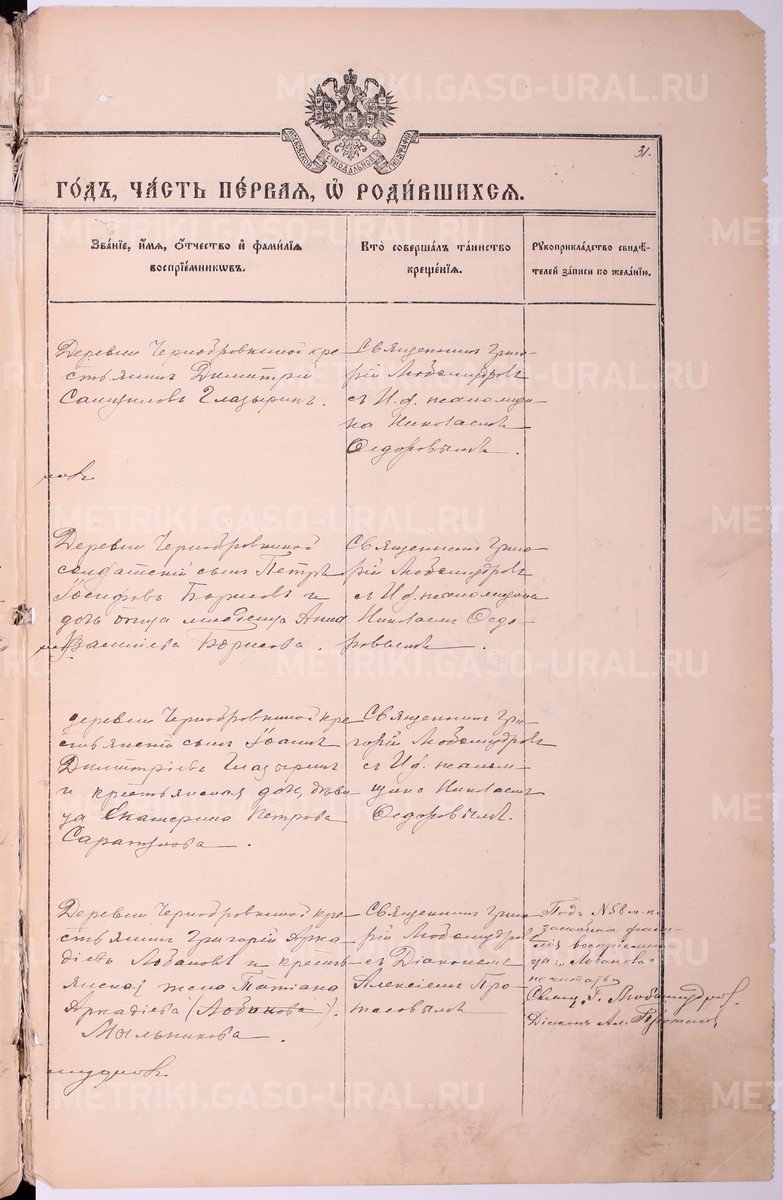 METRIKI.GASO-URAL.RU
МОСКОВСКОЙ СѴНОДАЛЬНОЙ ТИПОГРАФІИ
31.
ГО́ДЪ, ЧА́СТЬ ПЕ́РВАЯ, Ѽ РОДИ́ВШИХСЯ.
Зва́нїе, и́мѧ, ѻ́тчество и҆ фами́лїѧ
воспрїе́мникѡвъ.
Кто̀ соверша́лъ та́инство
креще́нїѧ.
Рꙋкоприкла́дство свидѣ́-
телей за́писи по жела́нїю.
Деревни Чернобровкиной кре-
стьянинъ Димитрій
Самуиловъ Глазыринъ.
Священникъ Григо-
рій Любомудровъ
съ И.д. псаломщи-
ка Николаемъ
Ѳедоровымъ.
Деревни Чернобровкиной
солдатскій сынъ Петръ
Іосифовъ Борисовъ и
дочь отца младенца Анна
Васильева Борисова.
Священникъ Григо-
рій Любомудровъ
съ И.д. псаломщика
Николаемъ Ѳедо-
ровымъ.
деревни Чернобровкиной кре-
стьянскій сынъ Іоаннъ
Димитріевъ Глазыринъ
и крестьянская дочь, дѣви-
ца Екатерина Петрова
Сарапулова.
Священникъ Гри-
горій Любомудровъ
съ И.д. псалом-
щика Николаемъ
Ѳедоровымъ.
Деревни Чернобровкиной кре-
стьянинъ Григорій Арка-
діевъ Лобановъ и кресть-
янская жена Татіана
Аркадіева (Лобанова).
Мыльникова.
Священникъ Григо-
рій Любомудровъ
съ Діакономъ
Алексіемъ Про-
тасовымъ
Подъ №58 м.п.
зачеркнутая фами-
лія воспріемни-
цы: "Лобанова"
не читать.
Свящ. Г. Любомудровъ.
Діаконъ Ал. Протасовъ
мудровъ